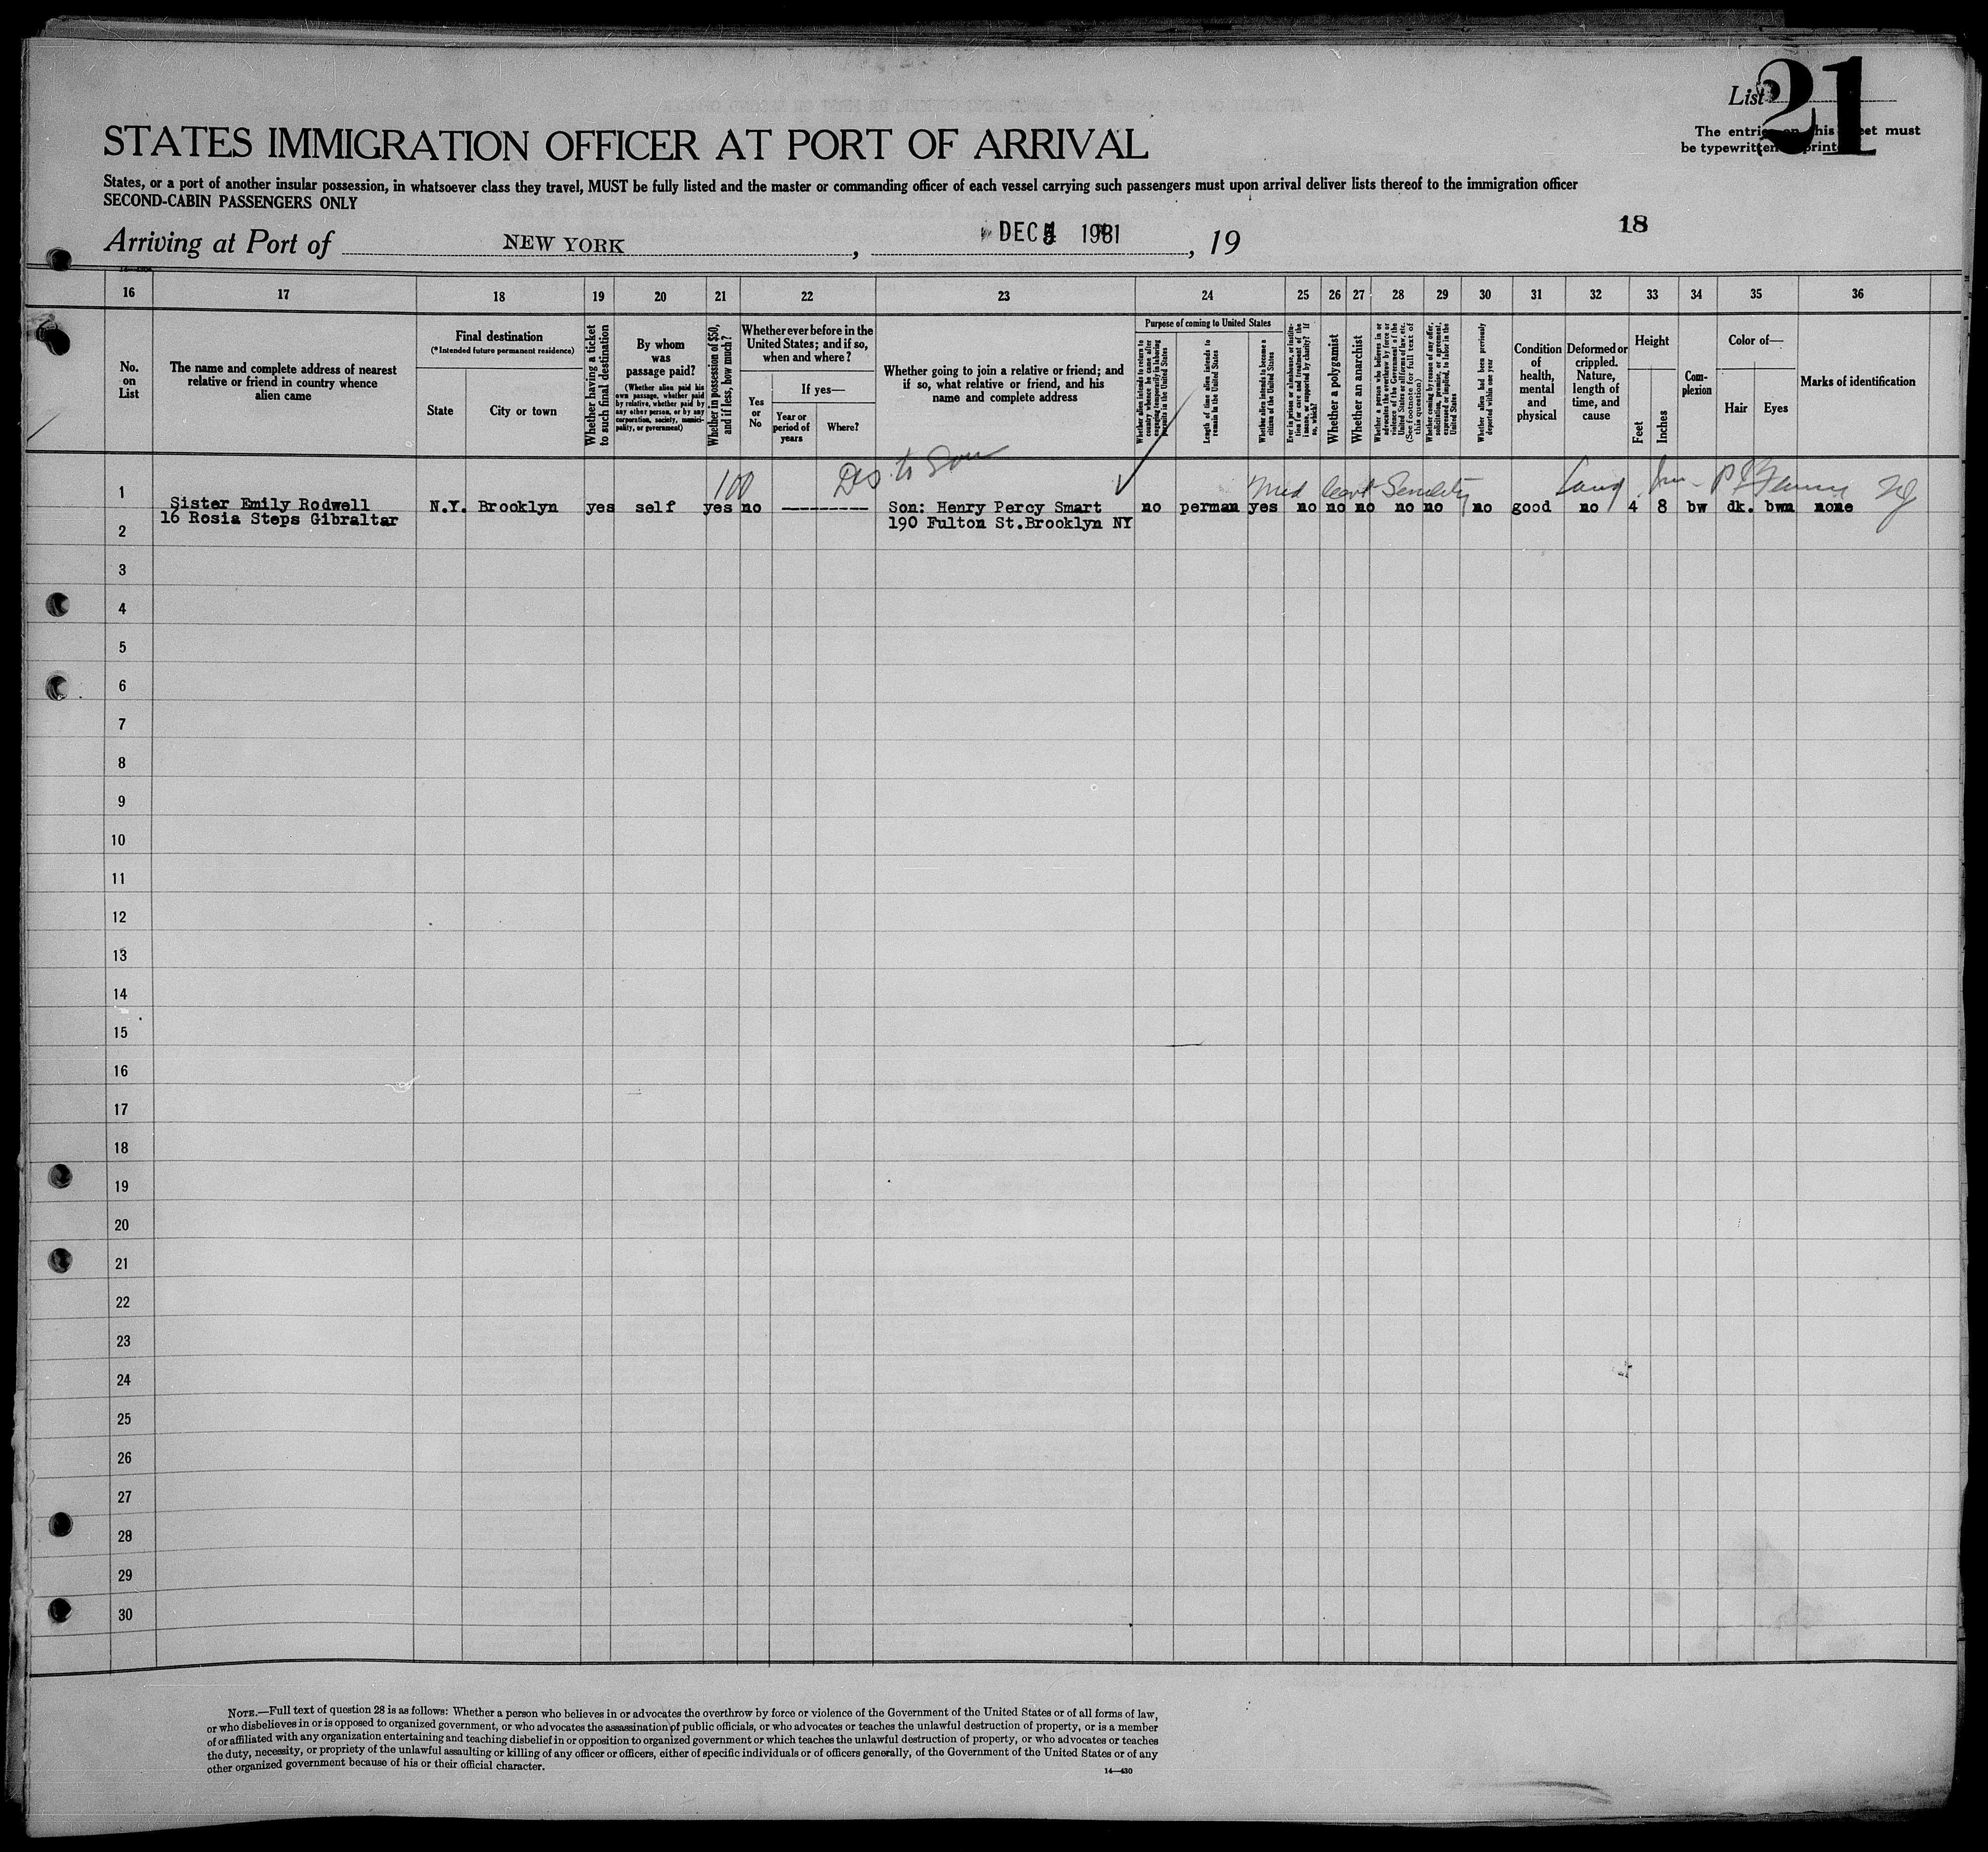 List 21
The entries on this sheet must
be typewritten or printed
STATES IMMIGRATION OFFICER AT PORT OF ARRIVAL
States, or a port of another insular possession, in whatsoever class they travel, MUST be fully listed and the master or commanding officer of each vessel carrying such passengers must upon arrival deliver lists thereof to the immigration officer
SECOND-CABIN PASSENGERS ONLY
18
Arriving at Port of NEW YORK, DEC 1931, 19
16 17 18 19 20 21 22 23 24 25 26 27 28 29 30 31 32 33 34 35 36
No. on List
The name and complete address of nearest
relative or friend in country whence
alien came
Final destination
(*Intended future permanent residence)
State
City or town
Whether having a ticket
to such final destination
By whom
was
passage paid?
(Whether alien paid his
own passage, whether paid
by relative, whether paid by
any other person, or by any
corporation, society, munici-
pality, or government)
Whether in possession of $50,
and if less, how much?
Whether ever before in the
United States; and if so,
when and where?
Yes
or
No
If yes—
Year or
period of
years
Where?
Whether going to join a relative or friend; and
if so, what relative or friend, and his
name and complete address
Purpose of coming to United States
Whether alien intends to return to
country whence he came after
engaging temporarily in laboring
pursuits in the United States
Length of time alien intends to
remain in the United States
Whether alien intends to become a
citizen of the United States
Ever in prison or almshouse, or institu-
tion for care and treatment of the
insane, or supported by charity? If
so, which?
Whether a polygamist
Whether an anarchist
Whether a person who believes in or
advocates the overthrow by force or
violence of the Government of the
United States or all forms of law, etc.
(See footnote for full text of
this question)
Whether coming by reason of any offer,
solicitation, promise, or agreement,
expressed or implied, to labor in the
United States
Whether alien had been previously
deported within one year
Condition
of
health,
mental
and
physical
Deformed or
crippled.
Nature,
length of
time, and
cause
Height
Feet
Inches
Com-
plexion
Color of—
Hair
Eyes
Marks of identification
100 Dis. to Son Med cert Senility
1 Sister Emily Rodwell N.Y. Brooklyn yes self yes no --------- Son: Henry Percy Smart no perman yes no no no no no no good no 4 8 bw dk. bwn none
16 Rosia Steps Gibraltar 190 Fulton St.Brooklyn NY
2
3
4
5
6
7
8
9
10
11
12
13
14
15
16
17
18
19
20
21
22
23
24
25
26
27
28
29
30
NOTE.—Full text of question 28 is as follows: Whether a person who believes in or advocates the overthrow by force or violence of the Government of the United States or of all forms of law,
or who disbelieves in or is opposed to organized government, or who advocates the assassination of public officials, or who advocates or teaches the unlawful destruction of property, or is a member
of or affiliated with any organization entertaining and teaching disbelief in or opposition to organized government or which teaches the unlawful destruction of property, or who advocates or teaches
the duty, necessity, or propriety of the unlawful assaulting or killing of any officer or officers, either of specific individuals or of officers generally, of the Government of the United States or of any
other organized government because of his or their official character.
14—430